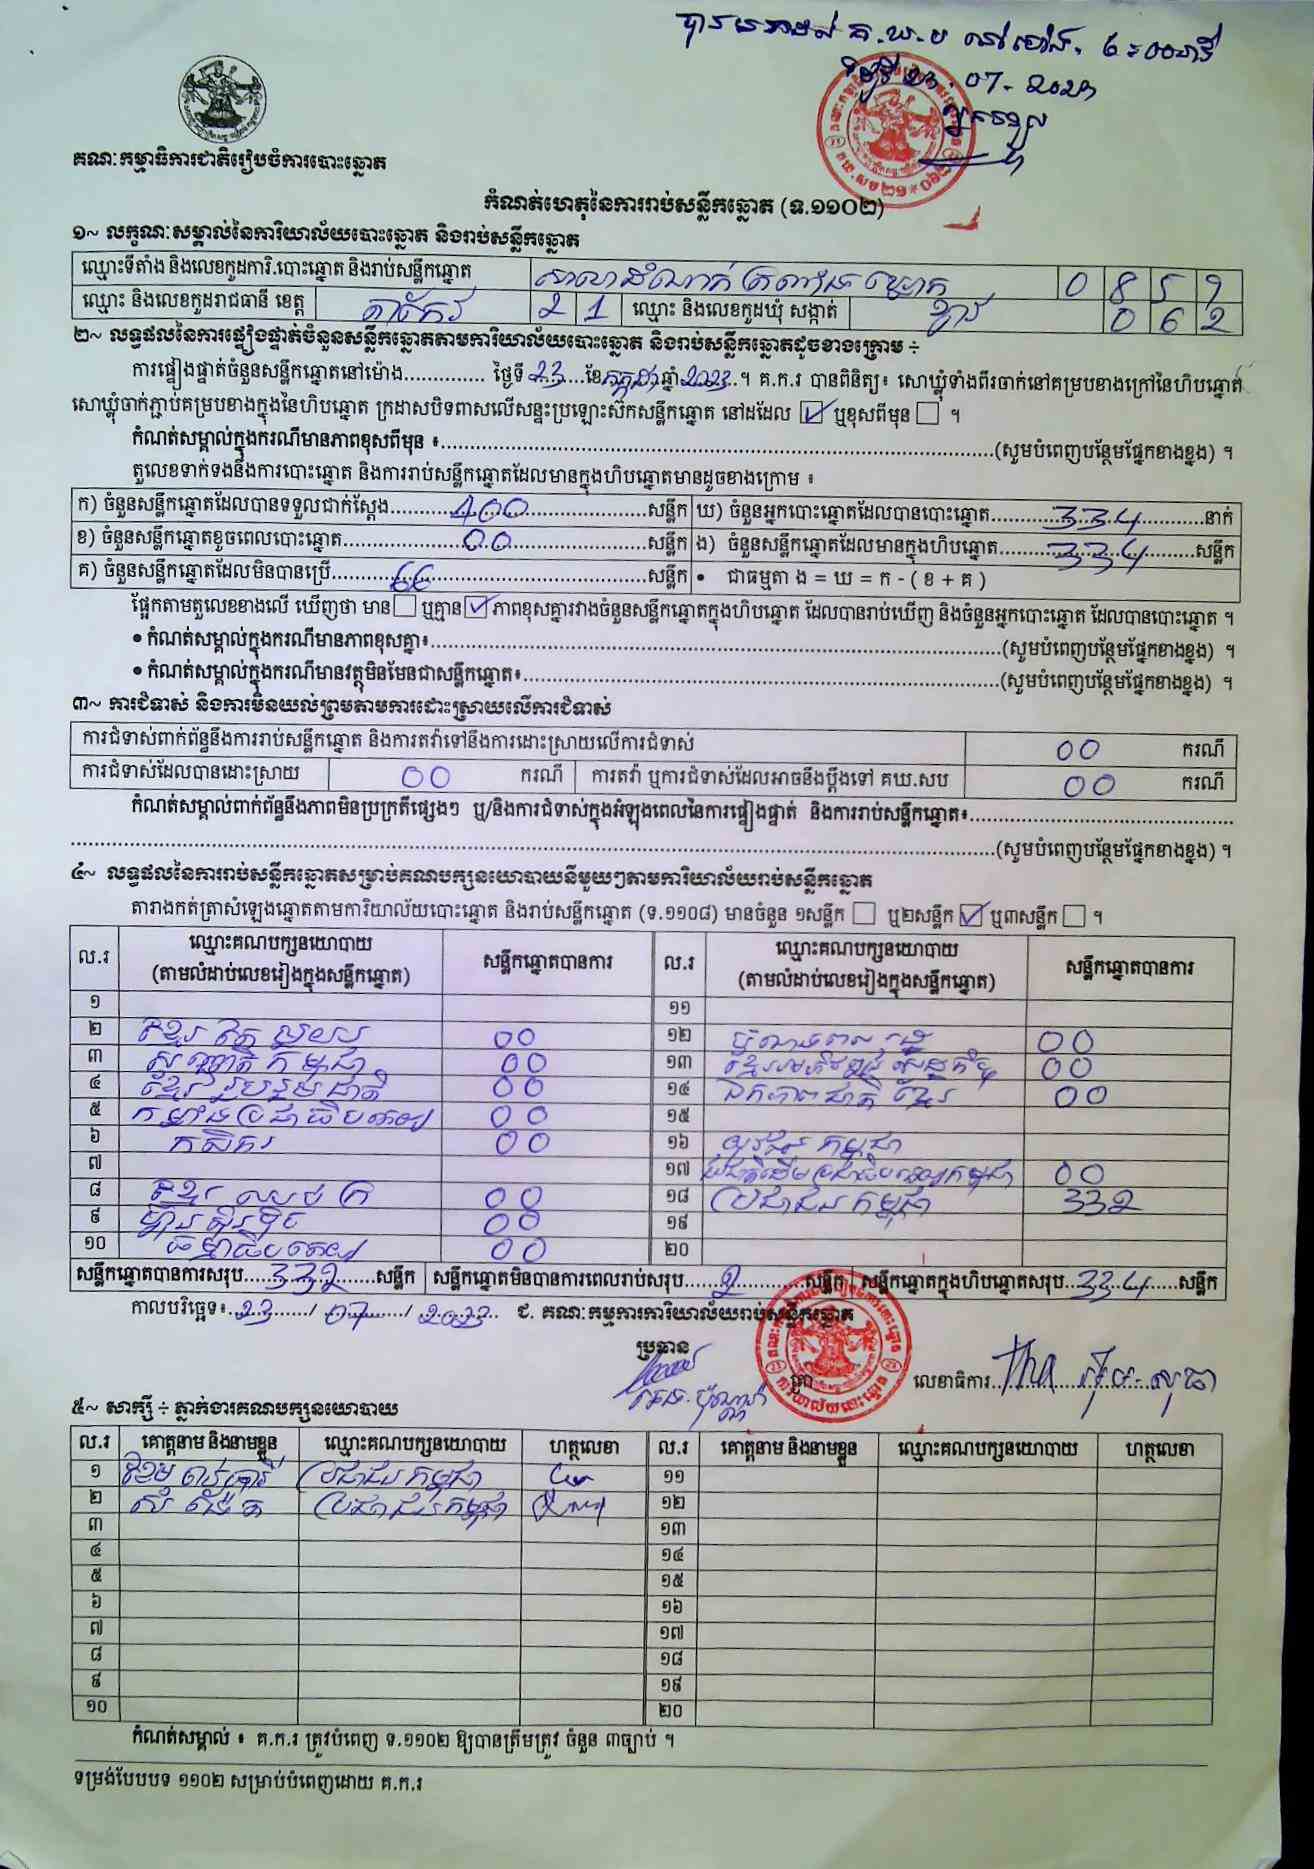 គណៈកម្មាធិការជាតិរៀបចំការបោះឆ្នោត
កំណត់ហេតុនៃការរាប់សន្លឹកឆ្នោត (ទ.១១០២)
១~ លក្ខណៈសម្គាល់នៃការិយាល័យបោះឆ្នោត និងរាប់សន្លឹកឆ្នោត
ឈ្មោះទីតាំង និងលេខកូដការិ.បោះឆ្នោត និងរាប់សន្លឹកឆ្នោត សាលាដំណាក់ 0 8 5 9
ឈ្មោះ និងលេខកូដរាជធានី ខេត្ត តាកែវ 2 1 ឈ្មោះ និងលេខកូដឃុំ សង្កាត់ 0 6 2
២~ លទ្ធផលនៃការផ្ទៀងផ្ទាត់ចំនួនសន្លឹកឆ្នោតតាមការិយាល័យបោះឆ្នោត និងរាប់សន្លឹកឆ្នោតដូចខាងក្រោម ÷
ការផ្ទៀងផ្ទាត់ចំនួនសន្លឹកឆ្នោតនៅម៉ោង.............. ថ្ងៃទី 23 ខែ កក្កដា ឆ្នាំ 2023 ។ គ.ក.រ បានពិនិត្យ៖ សោឃ្លុំទាំងពីរចាក់នៅគម្របខាងក្រៅនៃហិបឆ្នោត
សោឃ្លុំចាក់ភ្ជាប់គម្របខាងក្នុងនៃហិបឆ្នោត ក្រដាសបិទពាសលើសន្ទះប្រឡោះស៊កសន្លឹកឆ្នោត នៅដដែល ☑ ឬខុសពីមុន ☐ ។
កំណត់សម្គាល់ក្នុងករណីមានភាពខុសពីមុន ៖..............................(សូមបំពេញបន្ថែមផ្នែកខាងខ្នង) ។
តួលេខទាក់ទងនឹងការបោះឆ្នោត និងការរាប់សន្លឹកឆ្នោតដែលមានក្នុងហិបឆ្នោតមានដូចខាងក្រោម ៖
ក) ចំនួនសន្លឹកឆ្នោតដែលបានទទួលជាក់ស្តែង 400 សន្លឹក ឃ) ចំនួនអ្នកបោះឆ្នោតដែលបានបោះឆ្នោត 334 នាក់
ខ) ចំនួនសន្លឹកឆ្នោតខូចពេលបោះឆ្នោត 00 សន្លឹក ង) ចំនួនសន្លឹកឆ្នោតដែលមានក្នុងហិបឆ្នោត 334 សន្លឹក
គ) ចំនួនសន្លឹកឆ្នោតដែលមិនបានប្រើ 66 សន្លឹក • ជាធម្មតា ង = ឃ = ក - ( ខ + គ )
ផ្អែកតាមតួលេខខាងលើ ឃើញថា មាន ☐ ឬគ្មាន ☑ ភាពខុសគ្នារវាងចំនួនសន្លឹកឆ្នោតក្នុងហិបឆ្នោត ដែលបានរាប់ឃើញ និងចំនួនអ្នកបោះឆ្នោត ដែលបានបោះឆ្នោត ។
• កំណត់សម្គាល់ក្នុងករណីមានភាពខុសគ្នា៖..............................(សូមបំពេញបន្ថែមផ្នែកខាងខ្នង) ។
• កំណត់សម្គាល់ក្នុងករណីមានវត្ថុមិនមែនជាសន្លឹកឆ្នោត៖..............................(សូមបំពេញបន្ថែមផ្នែកខាងខ្នង) ។
៣~ ការជំទាស់ និងការមិនយល់ព្រមតាមការដោះស្រាយលើការជំទាស់
ការជំទាស់ពាក់ព័ន្ធនឹងការរាប់សន្លឹកឆ្នោត និងការតវ៉ាទៅនឹងការដោះស្រាយលើការជំទាស់ 00 ករណី
ការជំទាស់ដែលបានដោះស្រាយ 00 ករណី ការតវ៉ា ឬការជំទាស់ដែលអាចនឹងប្តឹងទៅ គឃ.សប 00 ករណី
កំណត់សម្គាល់ពាក់ព័ន្ធនឹងភាពមិនប្រក្រតីផ្សេងៗ ឬ/និងការជំទាស់ក្នុងអំឡុងពេលនៃការផ្ទៀងផ្ទាត់ និងការរាប់សន្លឹកឆ្នោត៖..............................
..............................(សូមបំពេញបន្ថែមផ្នែកខាងខ្នង) ។
៤~ លទ្ធផលនៃការរាប់សន្លឹកឆ្នោតសម្រាប់គណបក្សនយោបាយនីមួយៗតាមការិយាល័យរាប់សន្លឹកឆ្នោត
តារាងកត់ត្រាសំឡេងឆ្នោតតាមការិយាល័យបោះឆ្នោត និងរាប់សន្លឹកឆ្នោត (ទ.១១០៨) មានចំនួន ១សន្លឹក ☐ ឬ២សន្លឹក ☑ ឬ៣សន្លឹក ☐ ។
ល.រ ឈ្មោះគណបក្សនយោបាយ (តាមលំដាប់លេខរៀងក្នុងសន្លឹកឆ្នោត) សន្លឹកឆ្នោតបានការ ល.រ ឈ្មោះគណបក្សនយោបាយ (តាមលំដាប់លេខរៀងក្នុងសន្លឹកឆ្នោត) សន្លឹកឆ្នោតបានការ
១ ១១
២ ខ្មែរ 00 ១២ 00
៣ សញ្ជាតិកម្ពុជា 00 ១៣ ខ្មែរអភិវឌ្ឍន៍សេដ្ឋកិច្ច 00
៤ ខ្មែររួបរួមជាតិ 00 ១៤ ឯកភាពជាតិខ្មែរ 00
៥ កម្លាំងប្រជាធិបតេយ្យ 00 ១៥
៦ កសិករ 00 ១៦ យុវជនកម្ពុជា
៧ ១៧ ប្រជាធិបតេយ្យកម្ពុជា 00
៨ ខ្មែរ 00 ១៨ ប្រជាជនកម្ពុជា 332
៩ ហ្វ៊ុនស៊ិនប៉ិច 00 ១៩
១០ ធម្មាធិបតេយ្យ 00 ២០
សន្លឹកឆ្នោតបានការសរុប 332 សន្លឹក សន្លឹកឆ្នោតមិនបានការពេលរាប់សរុប 2 សន្លឹក សន្លឹកឆ្នោតក្នុងហិបឆ្នោតសរុប 334 សន្លឹក
កាលបរិច្ឆេទ៖ 23 / 07 / 2023 ជ. គណៈកម្មការការិយាល័យរាប់សន្លឹកឆ្នោត
ប្រធាន
លេខាធិការ
៥~ សាក្សី ÷ ភ្នាក់ងារគណបក្សនយោបាយ
ល.រ គោត្តនាម និងនាមខ្លួន ឈ្មោះគណបក្សនយោបាយ ហត្ថលេខា ល.រ គោត្តនាម និងនាមខ្លួន ឈ្មោះគណបក្សនយោបាយ ហត្ថលេខា
១ ប្រជាជនកម្ពុជា ១១
២ ប្រជាជនកម្ពុជា ១២
៣ ១៣
៤ ១៤
៥ ១៥
៦ ១៦
៧ ១៧
៨ ១៨
៩ ១៩
១០ ២០
កំណត់សម្គាល់ ៖ គ.ក.រ ត្រូវបំពេញ ទ.១១០២ ឱ្យបានត្រឹមត្រូវ ចំនួន ៣ច្បាប់ ។
ទម្រង់បែបបទ ១១០២ សម្រាប់បំពេញដោយ គ.ក.រ